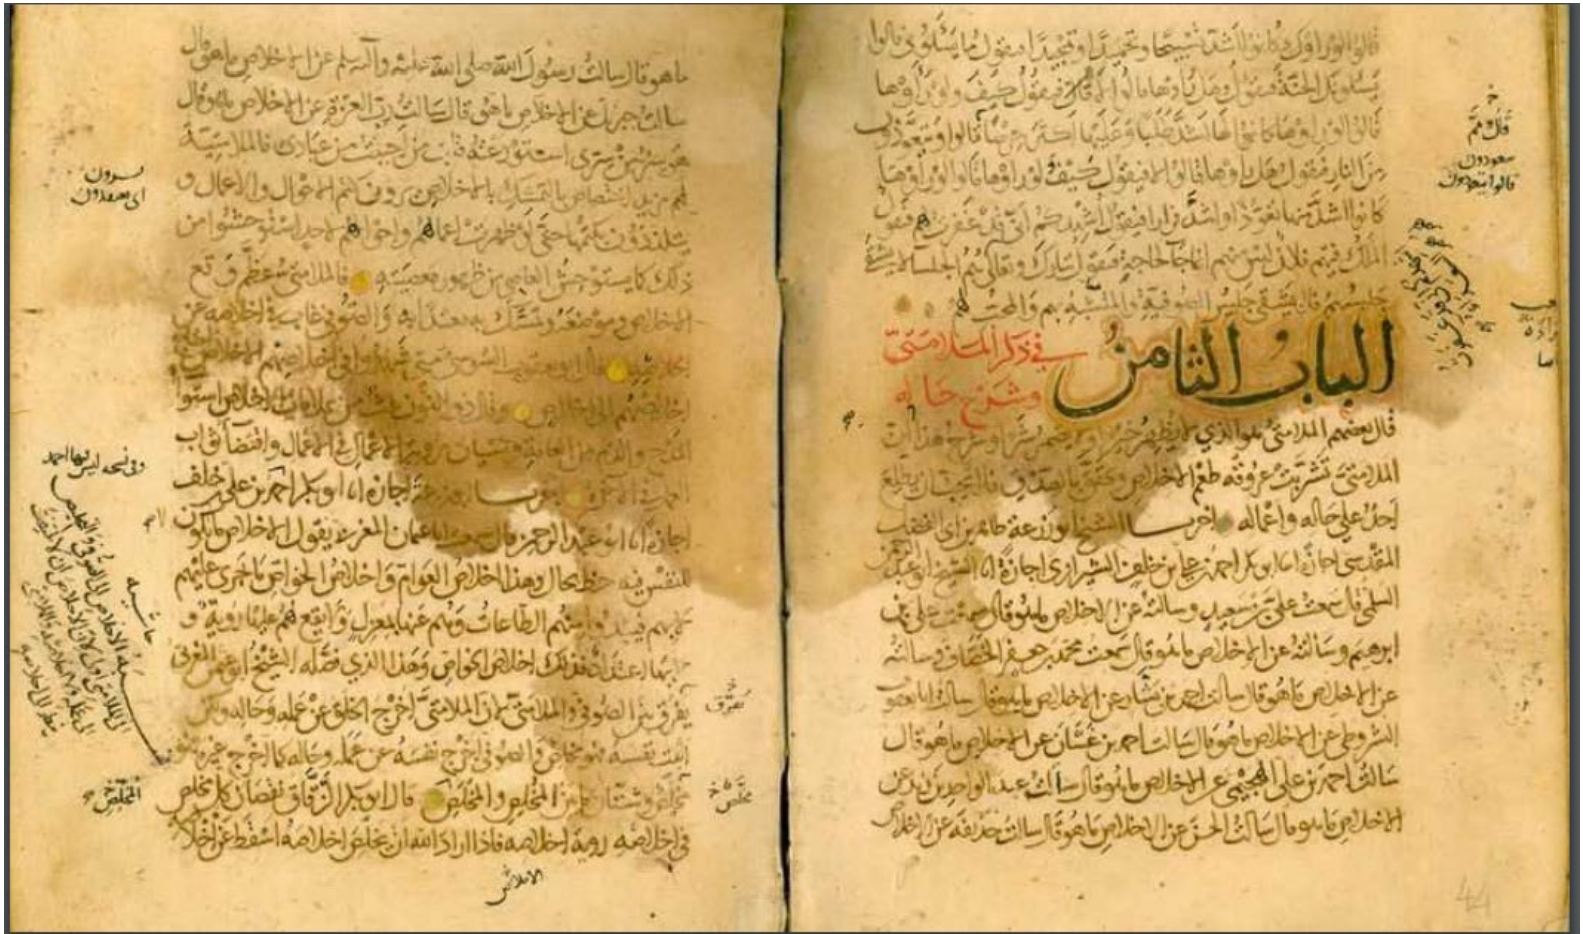 قالوا لو راوك كانوا اشد تسبيحا وتحميدا وتمجيدا فيقول ما يسئلوني قالوا
يسئلونك الجنة فيقول وهل راوها قالوا لا قال فيقول كيف ولو راوها
قالوا لو راوها كانوا لها اشد طلبا وعليها اكثر حرصا قالوا ويتعوذون
من النار فيقول وهل راوها قالوا لا فيقول كيف لو راوها قالوا لو راوها
كانوا اشد منها تعوذا واشد فرارا فيقول اشهدكم اني قد غفرت لهم فيقول
الملك فيهم فلان ليس منهم انما جا لحاجة فيقول تبارك وتعالى هم الجلسا لا يشقى
جليسهم فلا يشقى جليس الصوفية والمتشبه بهم والمحب لهم
الباب الثامن
في ذكر الملامتي
وشرح حاله
قال بعضهم الملامتي هو الذي لا يظهر خيرا ولا يضمر شرا وشرح هذا ان
الملامتي تشربت عروقه طعم الاخلاص وتحقق بالصدق فلا يحب ان يطلع
احد على حاله واعماله اخبرنا الشيخ ابو زرعة طاهر بن ابي الفضل
المقدسي اجازة انا ابو بكر احمد بن علي بن خلف الشيرازي اجازة انا الشيخ ابو عبد الرحمن
السلمي قال سمعت علي بن سعيد وسالته عن الاخلاص ما هو قال سمعت علي بن
ابرهيم وسالته عن الاخلاص ما هو قال سمعت محمد بن جعفر الخصاف وسالته
عن الاخلاص ما هو قال سالت احمد بن بشار عن الاخلاص ما هو قال سالت ابا يعقوب
الشروطي عن الاخلاص ما هو قال سالت احمد بن غسان عن الاخلاص ما هو قال
سالت احمد بن علي الهجيمي عن الاخلاص ما هو قال سالت عبد الواحد بن زيد عن
الاخلاص ما هو قال سالت الحسن عن الاخلاص ما هو قال سالت حذيفة عن الاخلاص
يتعوذون
قالوا يتعوذون
44
ما هو قال سالت رسول الله صلى الله عليه وآله وسلم عن الاخلاص ما هو قال
سالت جبريل عن الاخلاص ما هو قال سالت رب العزة عن الاخلاص ما هو قال
هو سر من سري استودعته قلب من احببت من عبادي فالملامتية
لهم مزيد اختصاص بالتمسك بالاخلاص يرون كتم الاحوال والاعمال و
يتلذذون بكتمها حتى لو ظهرت اعمالهم واحوالهم لاحد استوحشوا من
ذلك كما يستوحش العاصي من ظهور معصيته فالملامتي عظم وقع
الاخلاص وموضعه وتمسك به معتدا به والصوفي غاب في اخلاصه عن
اخلاصه قال ابو يعقوب السوسي متى شهدوا في اخلاصهم الاخلاص احتاج
اخلاصهم الى اخلاص وقال ذو النون ثلث من علامات الاخلاص استوا
المدح والذم من العامة ونسيان روية الاعمال في الاعمال واقتضا ثواب
العمل في الاخرة اخبرنا ابو زرعة اجازة انا ابو بكر احمد بن علي بن خلف
اجازة انا ابو عبد الرحمن قال سمعت ابا عثمان المغربي يقول الاخلاص ما لا يكون
للنفس فيه حظ بحال وهذا اخلاص العوام واخلاص الخواص ما يجري عليهم
لا بهم فتبدوا منهم الطاعات وهم عنها بمعزل ولا يقع لهم عليها روية ولا
بها اعتداد فذلك اخلاص الخواص وهذا الذي فصله الشيخ ابو عثمن المغربي
يفرق بين الصوفي والملامتي لان الملامتي اخرج الخلق عن عمله وحاله ولكن
اثبت نفسه فهو مخلص والصوفي اخرج نفسه عن عمله وحاله كما اخرج غيره فهو
مخلص وشتان ما بين المخلص والمخلص قال ابو بكر الزقاق نقصان كل مخلص
في اخلاصه روية اخلاصه فاذا اراد الله ان يخلص اخلاصه اسقط عن اخلاصه
يسرون
اي يعتقدون
وفي نسخه ليس فيها احمد
حاشيه
المخلص
يفرق
مخلص